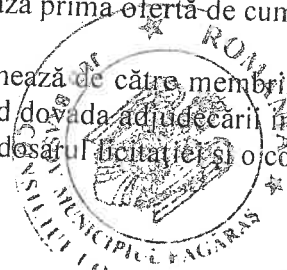 ază prima ofertă de cum
nează de către membri
d dovada adjudecării în
dosarul licitației și o co
ROMÂNIA
MUNICIPIUL FĂGĂRAȘ